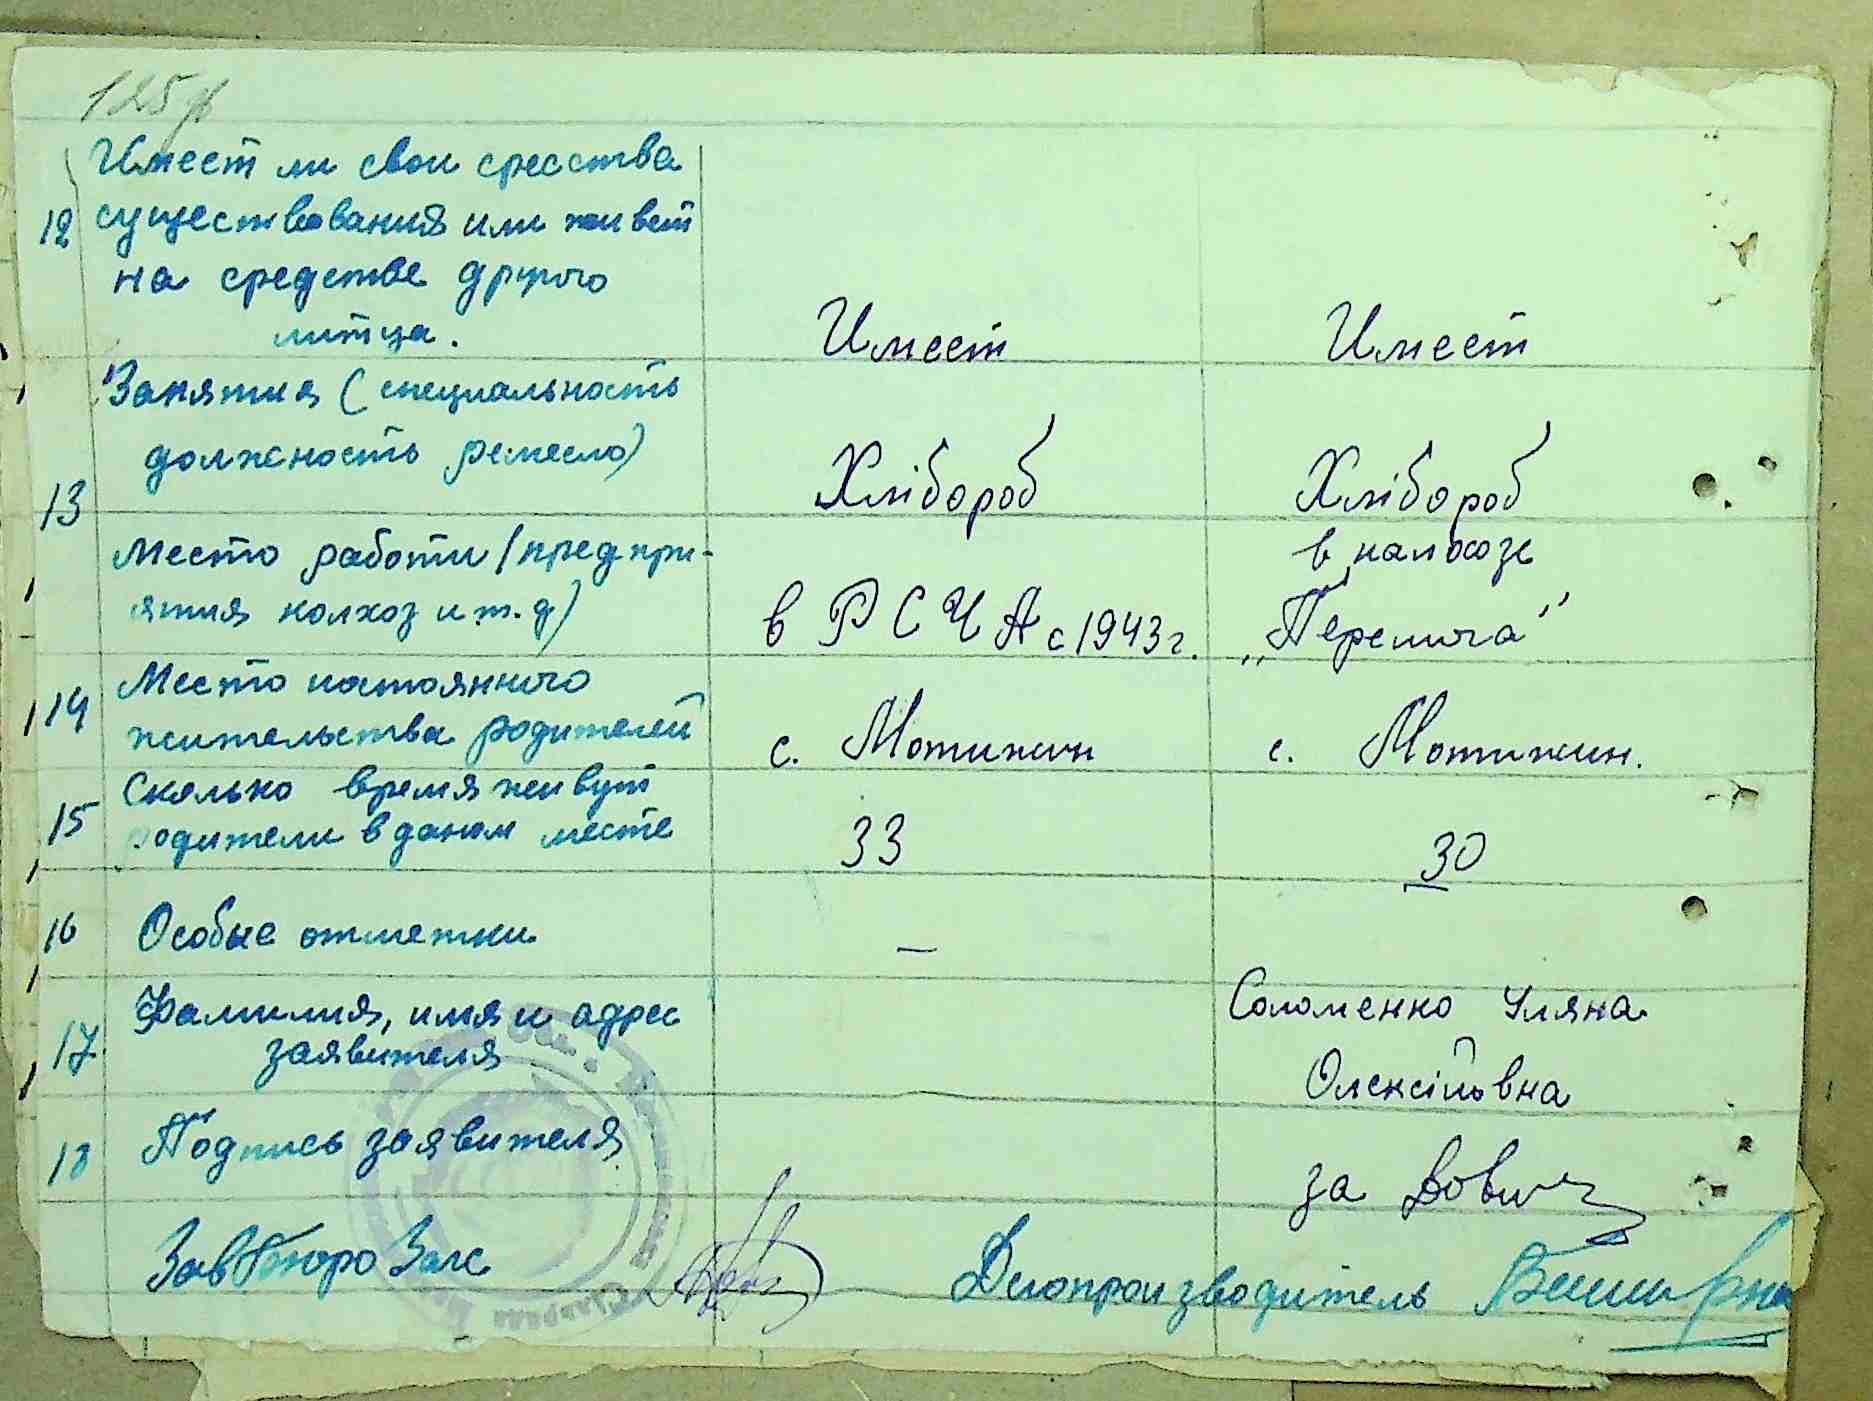 125
Имеет ли свои средства
12 существования или живет
на средстве другого
литца.
Имеет Имеет
Занятия (специальность
должность ремесло)
13 Хлібороб Хлібороб
Место работи (предпри-
ятия колхоз и т.д)
в РСЧА с 1943 г.
в калхозе
„Перемога"
14 Место постоянного
жительства родителей
с. Мотижин с. Мотижин.
Сколько время живут
15 родители в даном месте
33 30
16 Особые отметки —
Фамилия, имя и адрес
17 заявителя
Соломенко Уляна
Олексіївна
18 Подпись заявителя
за
Зав бюро Загс Делопроизводитель